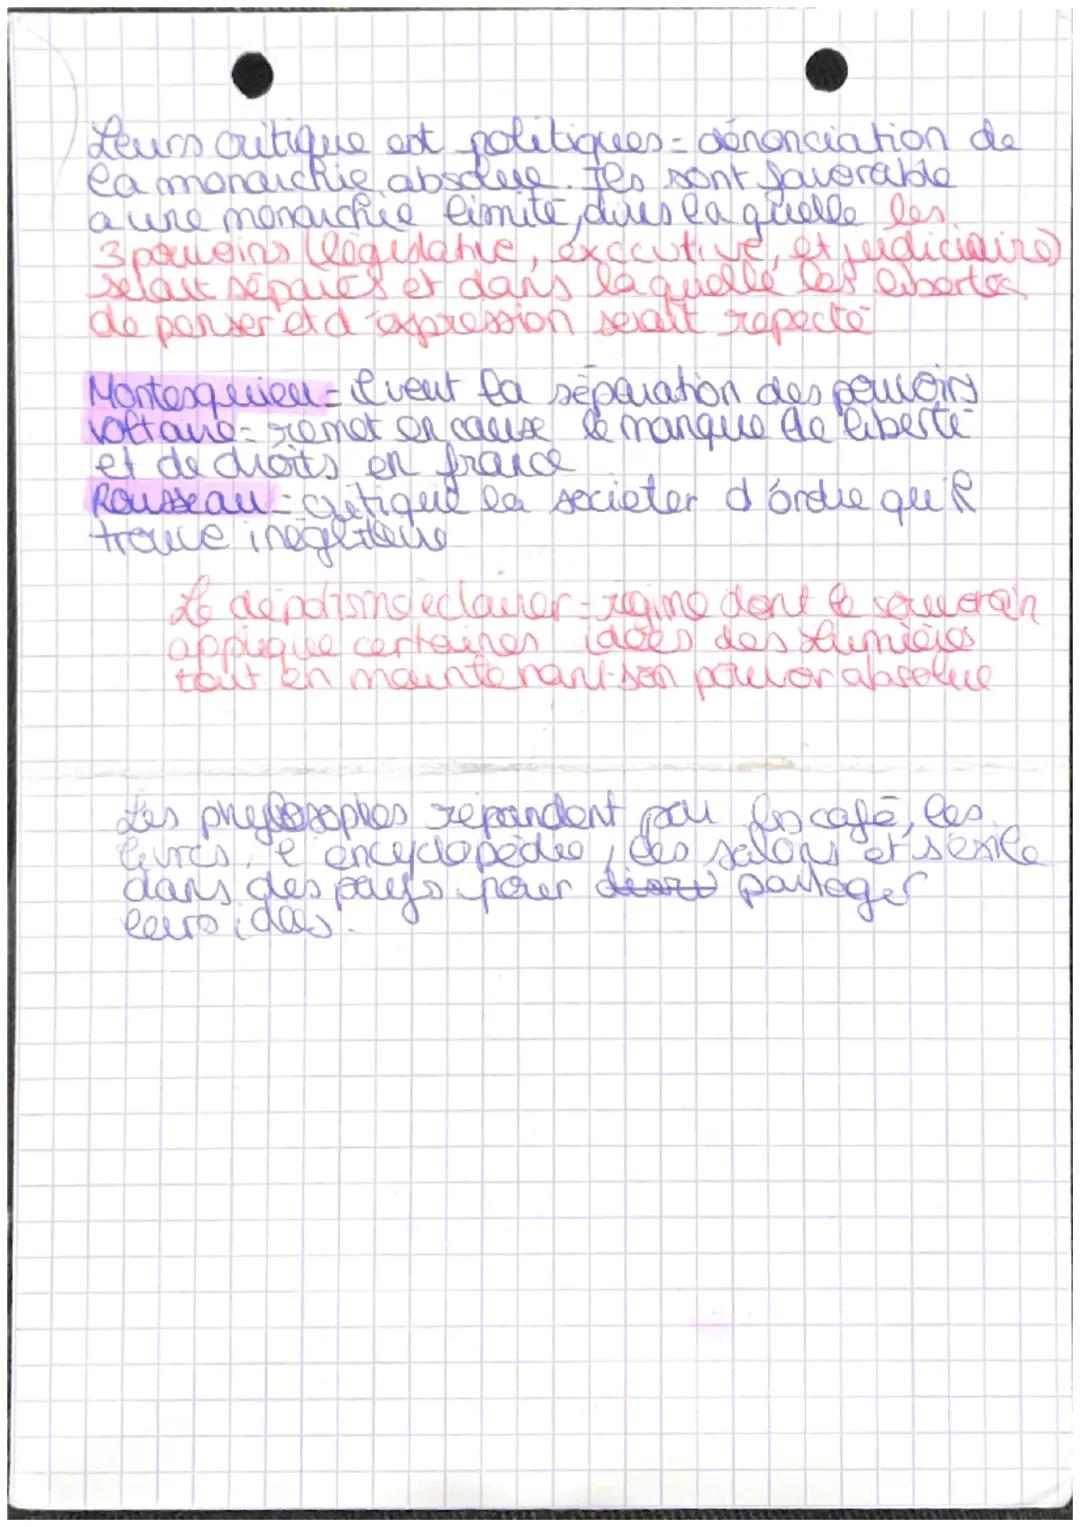 Leurs critique est politiques = dénonciation de
la monarchie absolue. Ils sont favorable
a une monarchie limité, dans la quelle les
3 pouvoirs (législative, éxecutive, et judiciaire)
serait séparés et dans laquelle les libertés
de penser et d'expression serait repecté
Montesquieu = il veut la séparation des pouvoirs
Voltaire = remet en cause le manque de liberté
et de droits en france
Rousseau = critique la societer d'ordre qu'il
trouve
Le depotisme eclairer = régime dont le souverain
applique certaines idées des Lumières
tout en maintenant son pouvoir absolue
Les répandent par les café, les
livres, l'encyclopédie, les salons et s'exile
dans des pays pour partager
leurs idées.